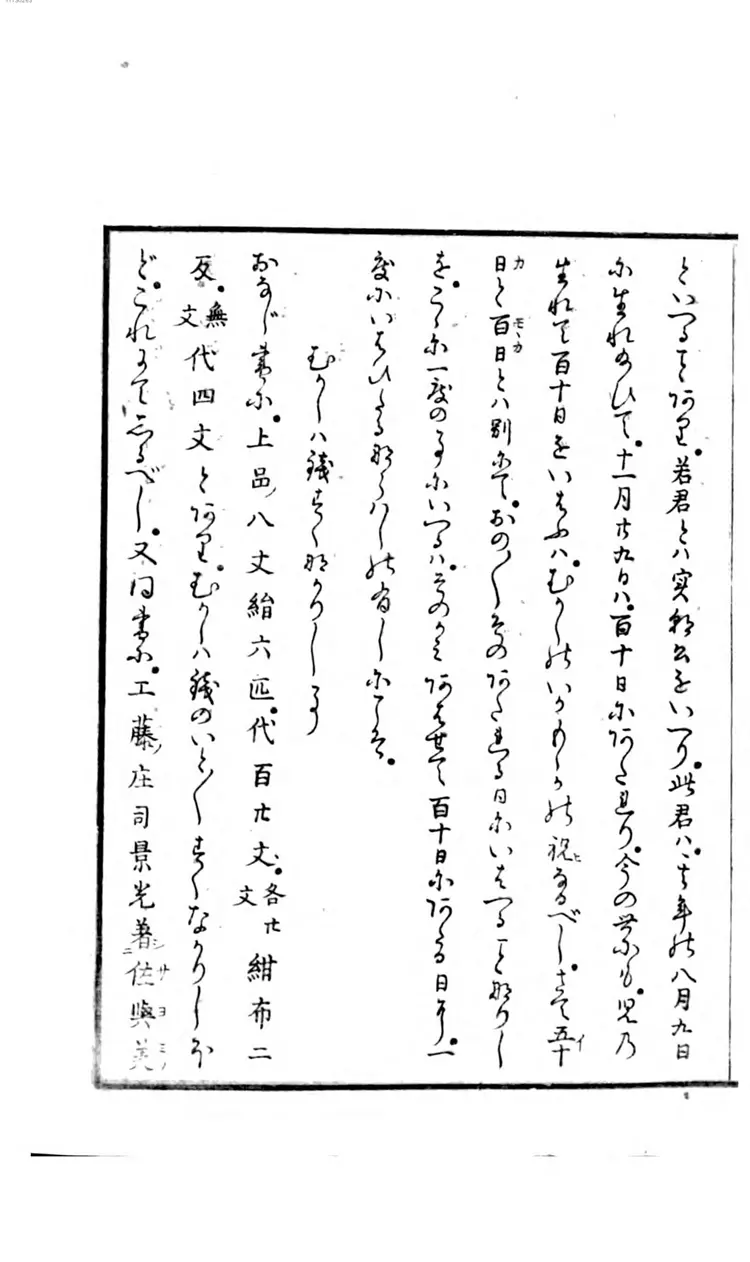 といへることあり。若君とは実朝公をいへり。此君は、其年の八月九日
に生れ給ひて、十一月廿九日は、百十日にあたれり。今の世にも、児乃
生れて百十日をいはふは、むかしのいかもゝかの祝なるべし。さて五十
日と百日とは別にて、おの〳〵その あたれる日にいはへること なりし
を、こゝに一度の事にいへるは、そのかみ あはせて百十日にあたる日に、一
度にいはひたる ならはしの有しにこそ。
むかしは銭すくなかりし事
おなじ書に、上品八丈絹六匹、代百廿文、各廿文 紺布二
反、無文 代四文とあり。むかしは銭のいと〳〵すくなかりしほ
ど、これにてしるべし。又同書に、工藤ノ庄司景光着佐與美